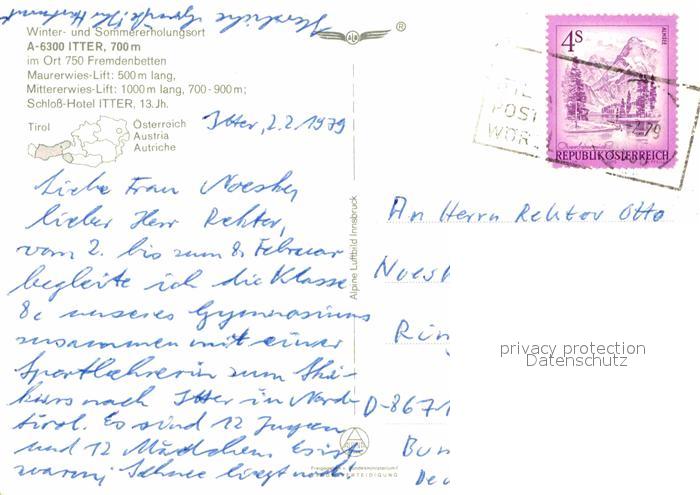 Herzliche Grüße, Ihr
Winter- und Sommererholungsort
A-6300 ITTER, 700 m
im Ort 750 Fremdenbetten
Maurerwies-Lift: 500 m lang,
Mittererwies-Lift: 1000 m lang, 700 - 900 m;
Schloß-Hotel ITTER, 13. Jh.
Tirol
Österreich
Austria
Autriche
Itter, 2.2.1979
Liebe Frau
lieber Herr Rektor,
vom 2. bis zum 8. Februar
begleite ich die Klasse
8c unseres Gymnasiums
zusammen mit einer
Sportlehrerin zum Ski-
kurs nach Itter in Nord-
tirol. Es sind 12 Jungen
und 12 Mädchen. Es ist
warm, Schnee liegt
Alpine Luftbild Innsbruck
4S
ALMSEE
REPUBLIK ÖSTERREICH
POST
An Herrn Rektor Otto
Noes
Rin
D-867
Bun
Deu
privacy protection
Datenschutz